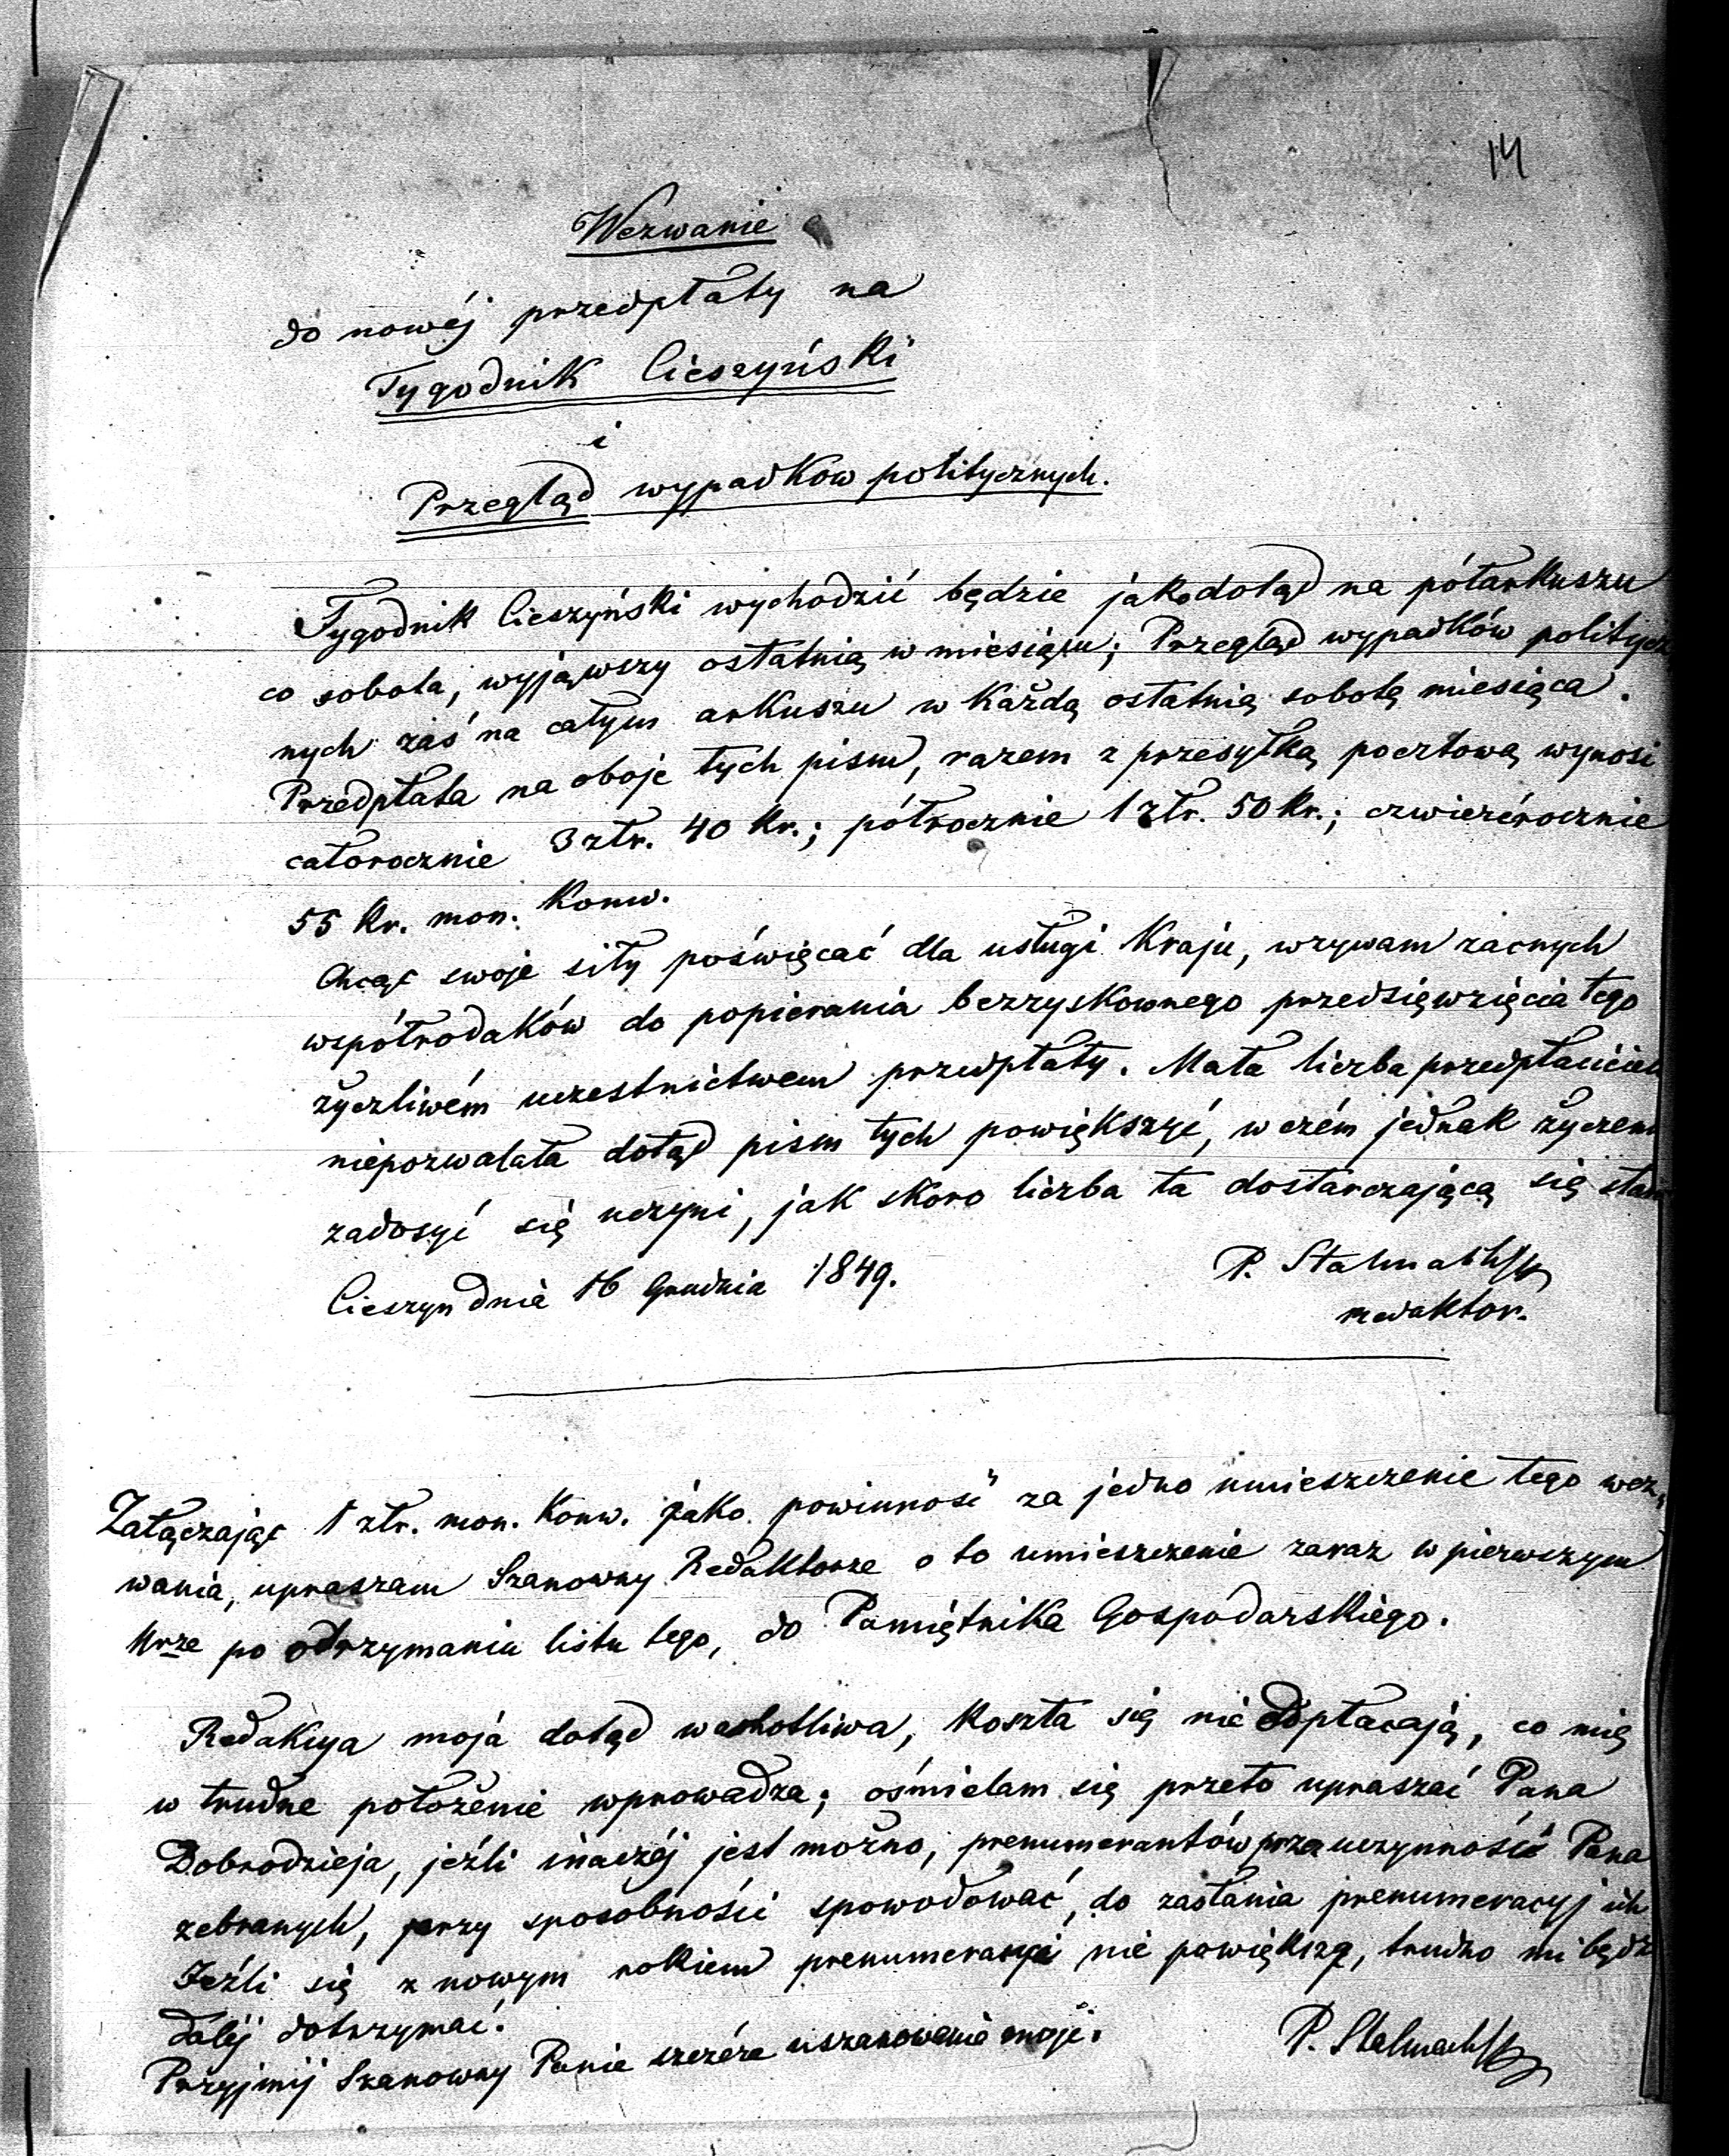 14
Wezwanie
do nowéj przedpłaty na
Tygodnik Cieszyński
i
Przegląd wypadków politycznych.
Tygodnik Cieszyński wychodzić będzie jak dotąd na półarkuszu
co sobota, wyjąwszy ostatnią w miesiącu; Przegląd wypadków politycz
nych zaś na całym arkuszu w każdą ostatnią sobotę miesiąca.
Przedpłata na oboje tych pism, razem z przesyłką pocztową wynosi
całorocznie 3 złr. 40 kr.; półrocznie 1 złr. 50 kr.; czwierćrocznie
55 kr. mon. konw.
Chcąc swoje siły poświęcać dla usługi kraju, wzywam zacnych
współrodaków do popierania bezzyskownego przedsięwzięcia tego
życzliwém uczestnictwem przedpłaty. Mała liczba przedpłacicieli
niepozwalała dotąd pism tych powiększyć, w czém jednak życzeni
zadosyć się uczyni, jak skoro liczba ta dostarczającą się stanie
Cieszyn dnia 16 Grudnia 1849.
P. Stalmach
redaktor.
Załączając 1 złr. mon. konw. jako powinność za jedno umieszczenie tego wez
wania, upraszam Szanowny Redaktorze o to umieszczenie zaraz w pierwszym
Nrze po odtrzymaniu listu tego, do Pamiętnika Gospodarskiego.
Redakcya moja dotąd wachotliwa, koszta się nie dopłacają, co mię
w trudne położenie wprowadza; ośmielam się przeto upraszać Pana
Dobrodzieja, jeźli inaczéj jest możno, prenumerantów prze uczynność Pana
zebranych, przy sposobności spowodować, do zasłania prenumeracyj ich
Jeźli się z nowym rokiem prenumeracyi nie powiększą, trudno mi będz
daléj dotrzymać.
Przyjmij Szanowny Panie szczére uszanowanie moje.
P. Stalmach